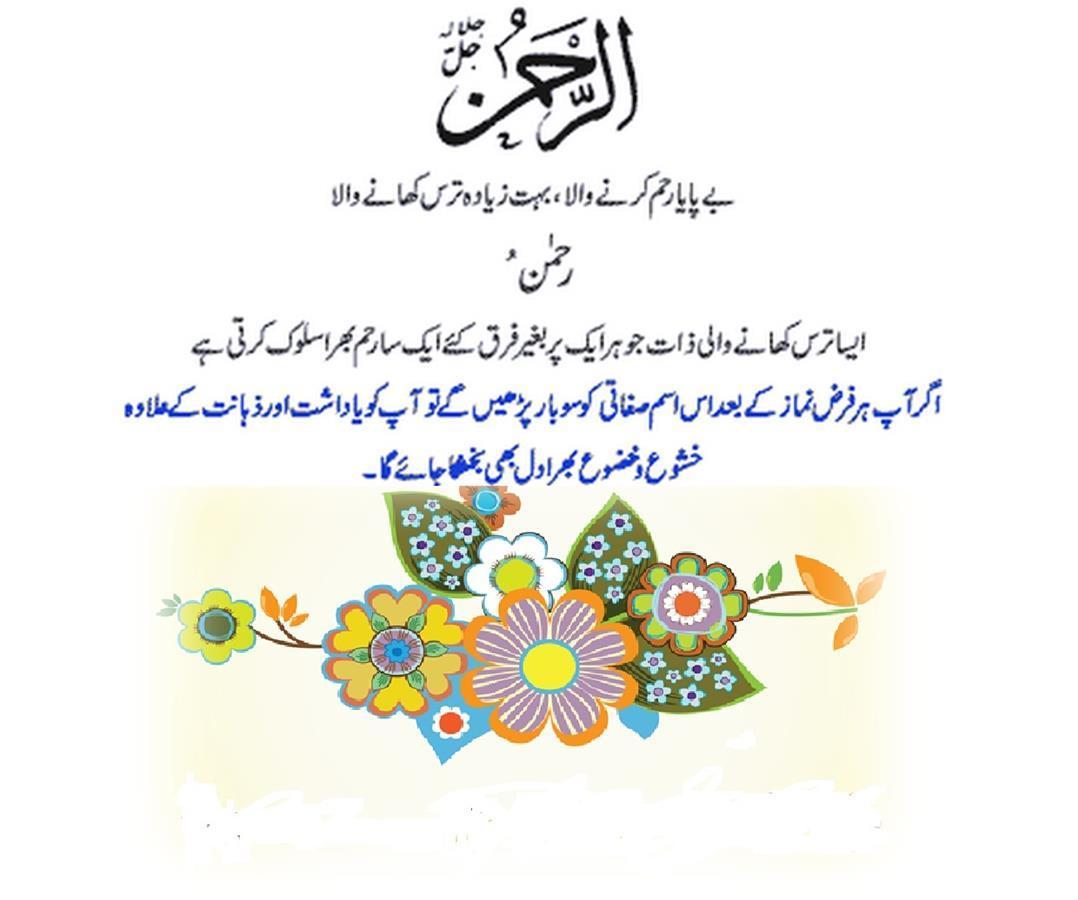 الرَّحْمٰنُ جل جلالہ
بے پایا رحم کرنے والا، بہت زیادہ ترس کھانے والا
رحمٰنُ
ایسا ترس کھانے والی ذات جو ہر ایک پر بغیر فرق کئے ایک سا رحم بھرا سلوک کرتی ہے
اگر آپ ہر فرض نماز کے بعد اس اسم صفاتی کو سو بار پڑھیں گے تو آپ کو یاداشت اور ذہانت کے علاوہ
خشوع و خضوع بھرا دل بھی بخشا جائے گا۔